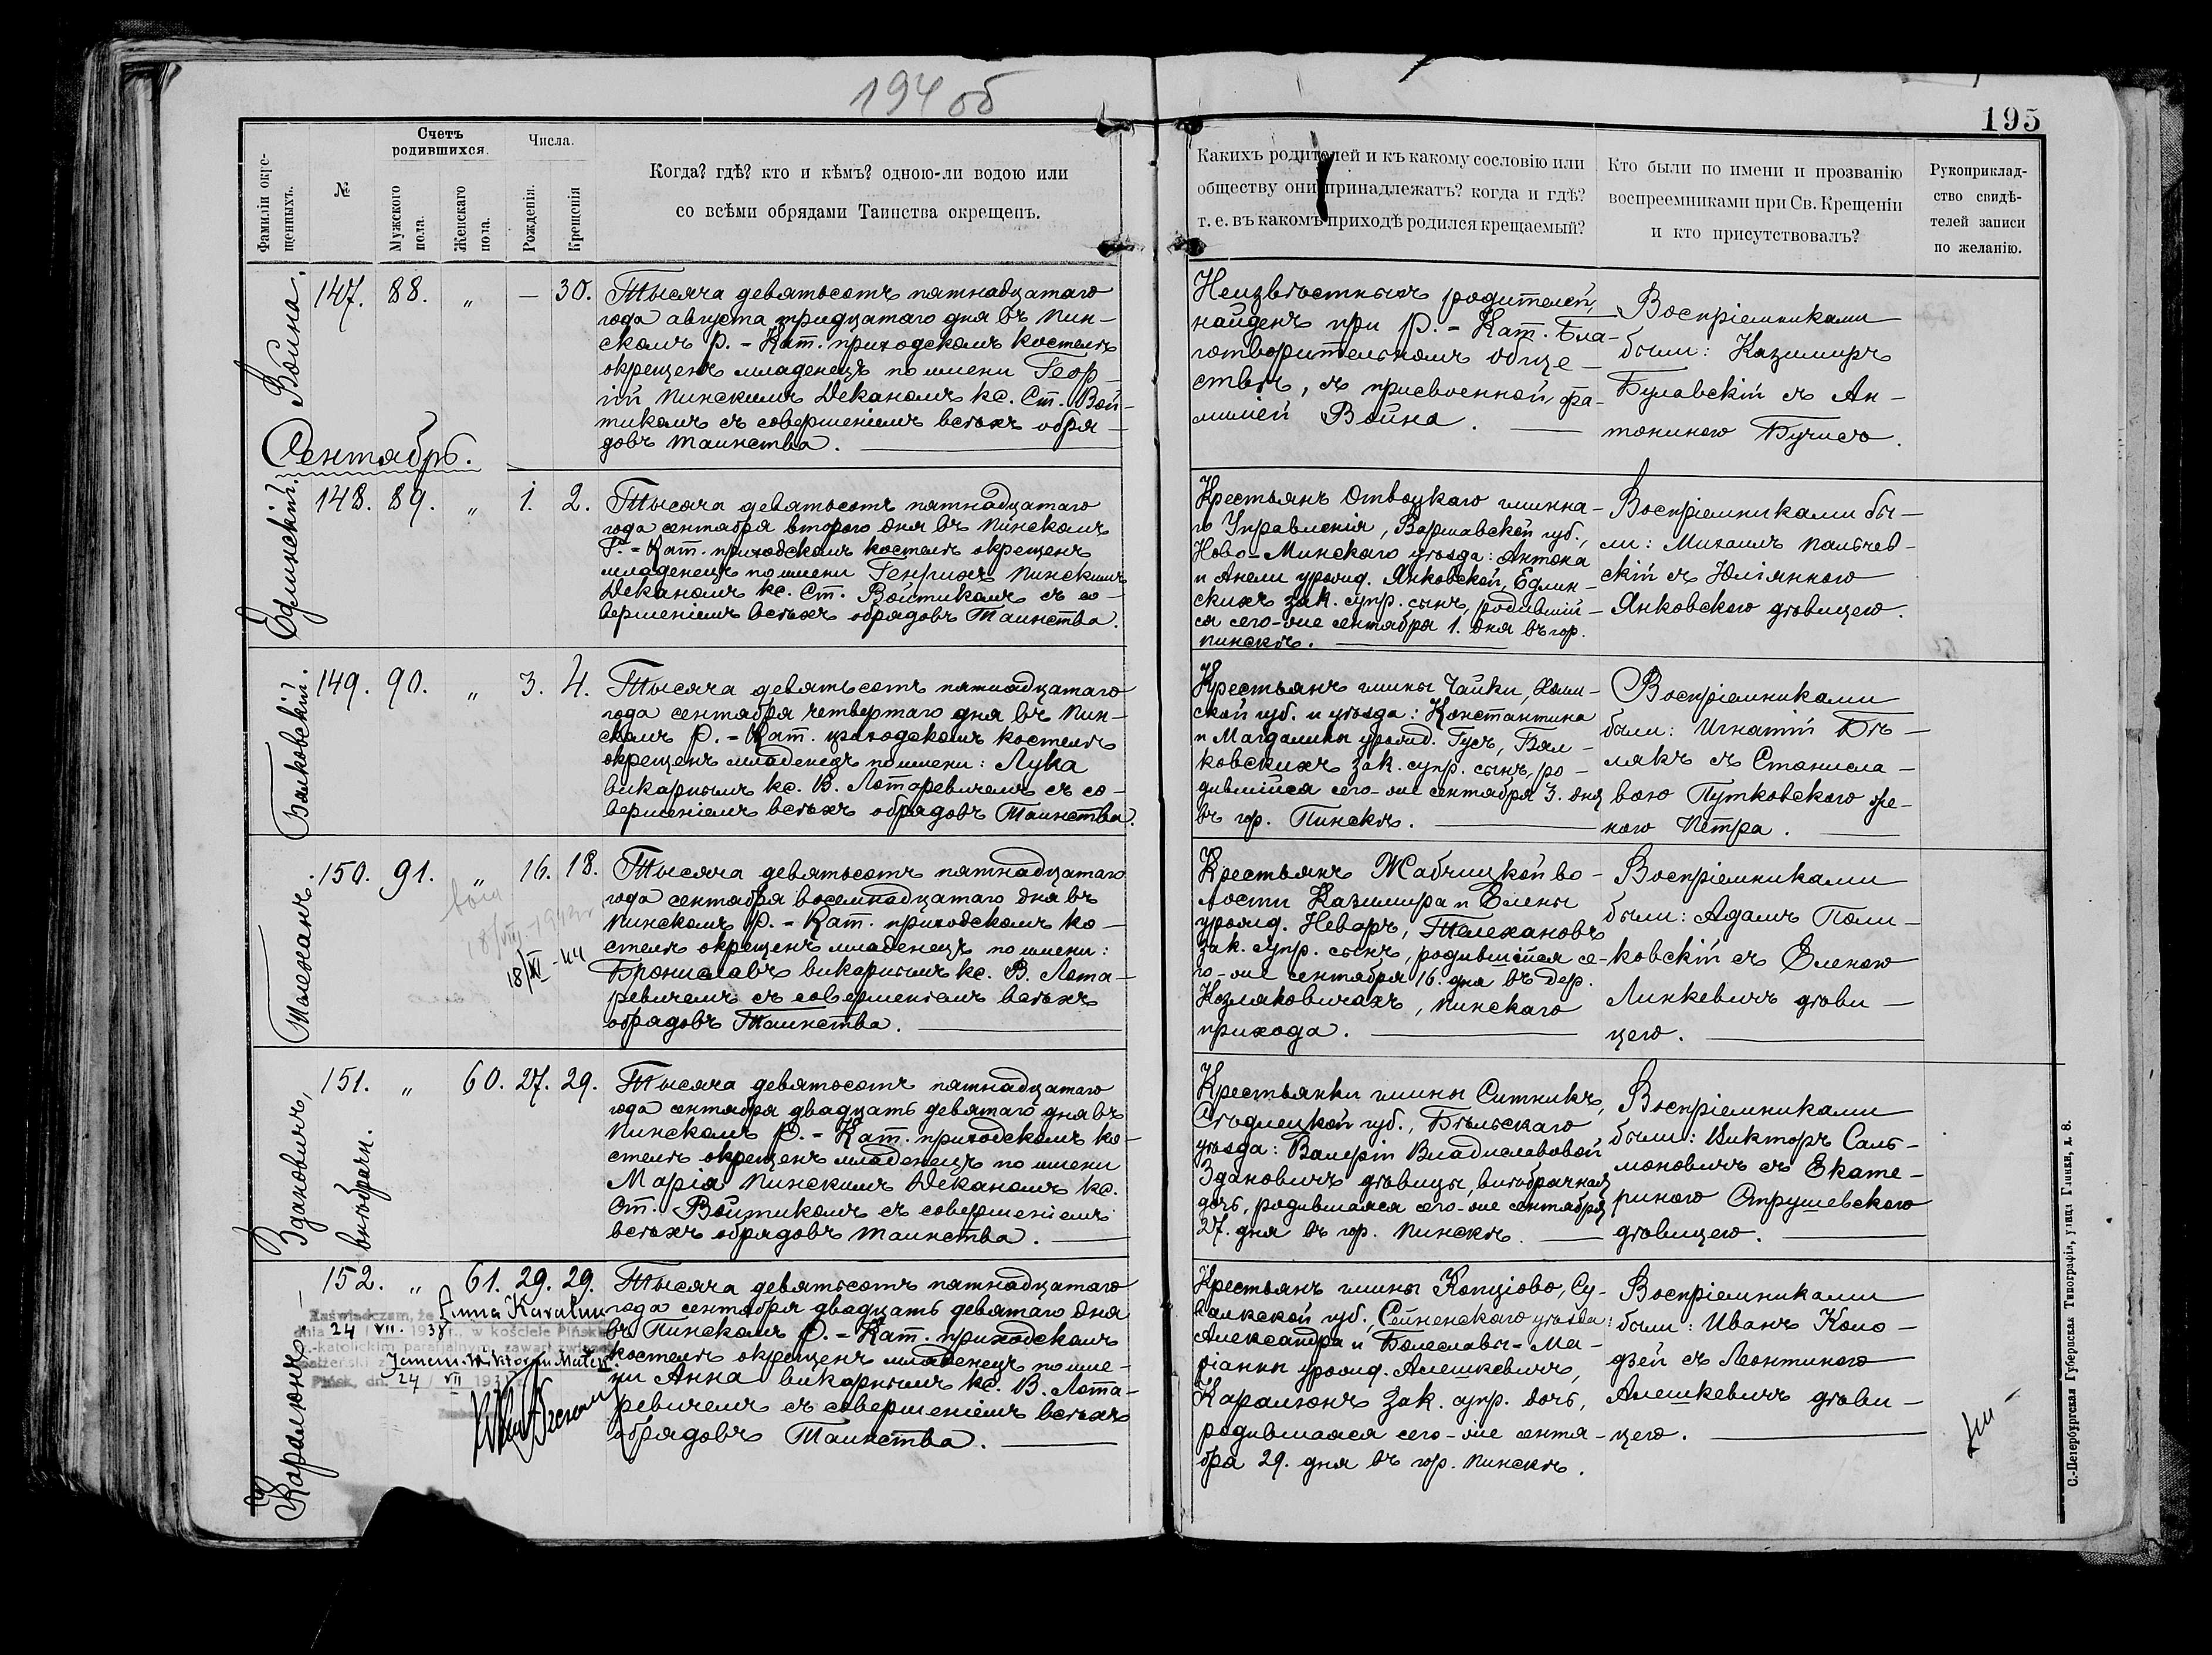 194 об
195
Фамиліи окрещенныхъ.
№
Счетъ родившихся.
Мужского пола.
Женскаго пола.
Числа.
Рожденія.
Крещенія
Когда? гдѣ? кто и кѣмъ? одною-ли водою или
со всѣми обрядами Таинства окрещенъ.
Какихъ родителей и къ какому сословію или
обществу они принадлежатъ? когда и гдѣ?
т. е. въ какомъ приходѣ родился крещаемый?
Кто были по имени и прозванію
воспреемниками при Св. Крещеніи
и кто присутствовалъ?
Рукоприклад-
ство свидѣ-
телей записи
по желанію.
Война.
147. 88. „ — 30.
Тысяча девятьсотъ пятнадцатаго
года августа тридцатаго дня въ Пин-
скомъ Р.-Кат. приходскомъ костелѣ
окрещенъ младенецъ по имени Геор-
гій Пинскимъ Деканомъ кс. Ст. Вой-
тикомъ съ совершеніемъ всѣхъ обря-
довъ Таинства.
Неизвѣстныхъ родителей,
найденъ при Р.-Кат. Бла-
готворительномъ обще-
ствѣ, съ присвоенной фа-
миліей Война.
Воспріемниками
были: Казимиръ
Булавскій съ Ан-
тониною
Сентябрь.
Едлинскій.
148. 89. „ 1. 2.
Тысяча девятьсотъ пятнадцатаго
года сентября второго дня въ Пинскомъ
Р.-Кат. приходскомъ костелѣ окрещенъ
младенецъ по имени Генрихъ Пинскимъ
Деканомъ кс. Ст. Войтикомъ съ со-
вершеніемъ всѣхъ обрядовъ Таинства.
Крестьянъ Отвоцкаго гминна-
го Управленія, Варшавской губ.,
Ново-Минскаго уѣзда: Антона
и Анели урожд. Янковской, Едлин-
скихъ зак. супр. сынъ, родившій-
ся сего-же сентября 1. дня въ гор.
Пинскѣ.
Воспріемниками бы-
ли: Михаилъ Пальчев-
скій съ Юліянною
Янковскою дѣвицею.
Балковскій.
149. 90. „ 3. 4.
Тысяча девятьсотъ пятнадцатаго
года сентября четвертаго дня въ Пин-
скомъ Р.-Кат. приходскомъ костелѣ
окрещенъ младенецъ по имени: Лука
викарнымъ кс. В. Лотаревичемъ съ со-
вершеніемъ всѣхъ обрядовъ Таинства.
Крестьянъ гмины Чайки, Холм-
ской губ. и уѣзда: Константина
и Магдалины урожд. Гусъ, Бал-
ковскихъ зак. супр. сынъ, ро-
дившійся сего-же сентября 3. дня
въ гор. Пинскѣ.
Воспріемниками
были: Игнатій Бѣ-
лякъ съ Станисла-
вою Путковскою же-
ною Петра.
Телеханъ.
150. 91. „ 16. 18.
18/XI-44
Тысяча девятьсотъ пятнадцатаго
года сентября восемнадцатаго дня въ
Пинскомъ Р.-Кат. приходскомъ ко-
стелѣ окрещенъ младенецъ по имени:
Брониславъ викарнымъ кс. В. Лота-
ревичемъ съ совершеніемъ всѣхъ
обрядовъ Таинства.
Крестьянъ Жабчицкой во-
лости Казимира и Елены
урожд. Неваръ, Телехановъ
зак. супр. сынъ, родившійся се-
го-же сентября 16. дня въ дер.
Козляковичахъ, Пинскаго
прихода.
Воспріемниками
были: Адамъ Поли-
ковскій съ Еленою
Линкевичъ дѣви-
цею.
Здановичъ,
внѣбрачн.
151. „ 60. 27. 29.
Тысяча девятьсотъ пятнадцатаго
года сентября двадцать девятаго дня въ
Пинскомъ Р.-Кат. приходскомъ ко-
стелѣ окрещенъ младенецъ по имени
Марія Пинскимъ Деканомъ кс.
Ст. Войтикомъ съ совершеніемъ
всѣхъ обрядовъ Таинства.
Крестьянки гмины Ситникъ,
Сѣдлецкой губ., Бѣльскаго
уѣзда: Валеріи Владиславовой
Здановичъ дѣвицы, внѣбрачная
дочь, родившаяся сего-же сентября
27. дня въ гор. Пинскѣ.
Воспріемниками
были: Викторъ Саль-
моновичъ съ Екате-
риною Струшевскою
дѣвицею.
Каралюнъ.
152. „ 61. 29. 29.
Zaświadczam, że Anna Karalun
dnia 24/VII. 1938 r., w kościele Pińskim
-katolickim parafjalnym, zawarł związek
małżeński z
Pińsk, dn. 24/VII 193
Тысяча девятьсотъ пятнадцатаго
года сентября двадцать девятаго дня
въ Пинскомъ Р.-Кат. приходскомъ
костелѣ окрещенъ младенецъ по име-
ни Анна викарнымъ кс. В. Лота-
ревичемъ съ совершеніемъ всѣхъ
обрядовъ Таинства.
Крестьянъ гмины Копціово, Су-
валкской губ., Сейненскаго уѣзда:
Александра и Болеславы-Ма-
ріанны урожд. Алешкевичъ,
Каралюнъ зак. супр. дочь,
родившаяся сего-же сентя-
бра 29. дня въ гор. Пинскѣ.
Воспріемниками
были: Иванъ Коло-
дзей съ Леонтиною
Алешкевичъ дѣви-
цею.
С.-Петербургская Губернская Типографія, улица Глинки, д. 8.